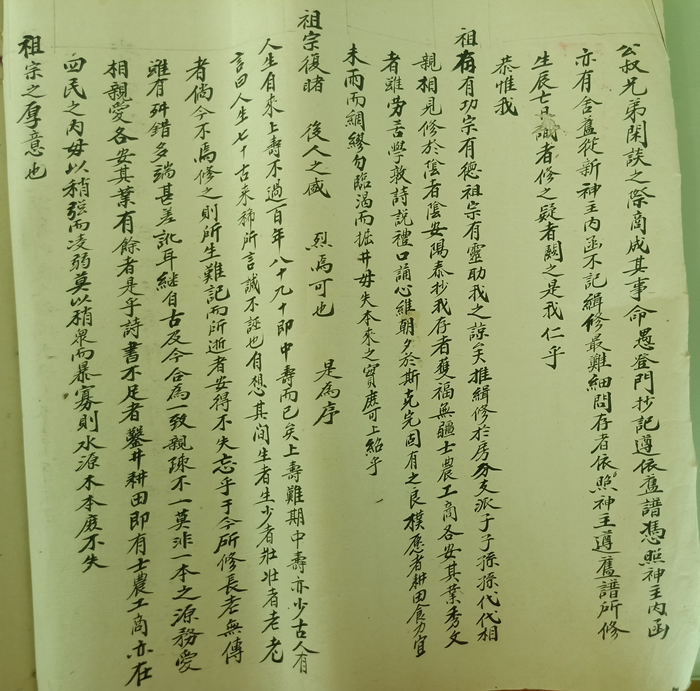 公叔兄弟閑談之際商成其事命愚登門抄記遵依舊譜憑照神主內函
亦有舍舊從新神主內函不記緝修最難細問存者依照神主遵舊譜所修
生辰亡忌識者修之疑者闕之是我仁乎
恭惟我
祖有功宗有德祖宗有靈助我之諒矣推緝修於房分支派子子孫孫代代相
親相見修於陰者陰安陽泰抄我存者獲福無疆士農工商各安其業秀文
者雖勞苦學敦詩說禮口誦心維朝夕於斯克完固有之良樸應者耕田食力宜
未雨而綢繆勿臨渴而掘井毋失本來之實庶可上紹乎
祖宗復睹 後人之盛 烈焉可也 是為序
人生自來上壽不過一百年八十九十即中壽而已矣上壽難期中壽亦少古人有
言曰人生七十古來稀所言誠不誣也自想其间生者生少者壯壯者老老
者倘今不為修之則所生難記而所逝者安得不失忘乎于今所修長老無傳
雖有舛錯多端甚差訛耳繼自古及今合為一致親疎不一莫非一本之源務愛
相親愛各安其業有餘者是乎詩書不足者鑿井耕田即有士農工商亦在
四民之內毋以稍強而凌弱莫以稍眾而暴寡則水源木本庶不失
祖宗之厚意也